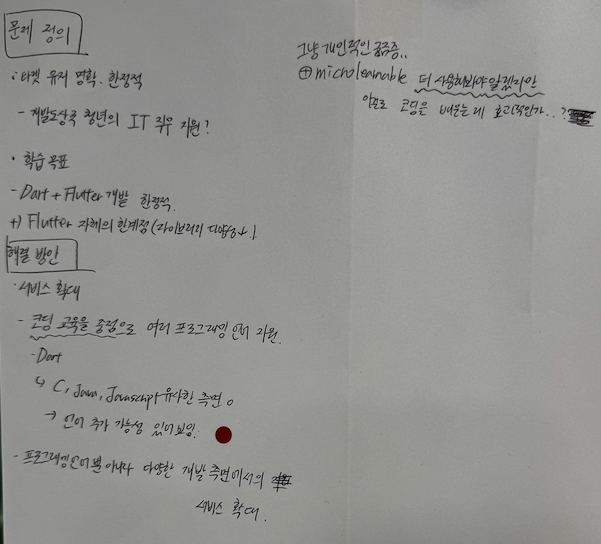 문제 정의
· 타겟 유저 명확. 한정적
- 개발도상국 청년의 IT 직유 지원?
• 학습 목표
- Dart + Flutter 개발 한정적.
+) Flutter 자체의 한계점 (라이브러리 다양성↓.)
해결 방안
· 서비스 확대
- 코딩 교육을 중점으로 여러 프로그래밍 언어 지원.
- Dart
↳ C, Java, Javascript 유사한 측면 o
→ 언어 추가 가능성 있어보임.
- 프로그래밍 언어뿐 아니라 다양한 개발 측면에서의
서비스 확대.
그냥 개인적인 궁금증..
⊕ microleanable 더 사용해봐야 알겠지만
이걸로 코딩을 배우는데 효과적인가..?